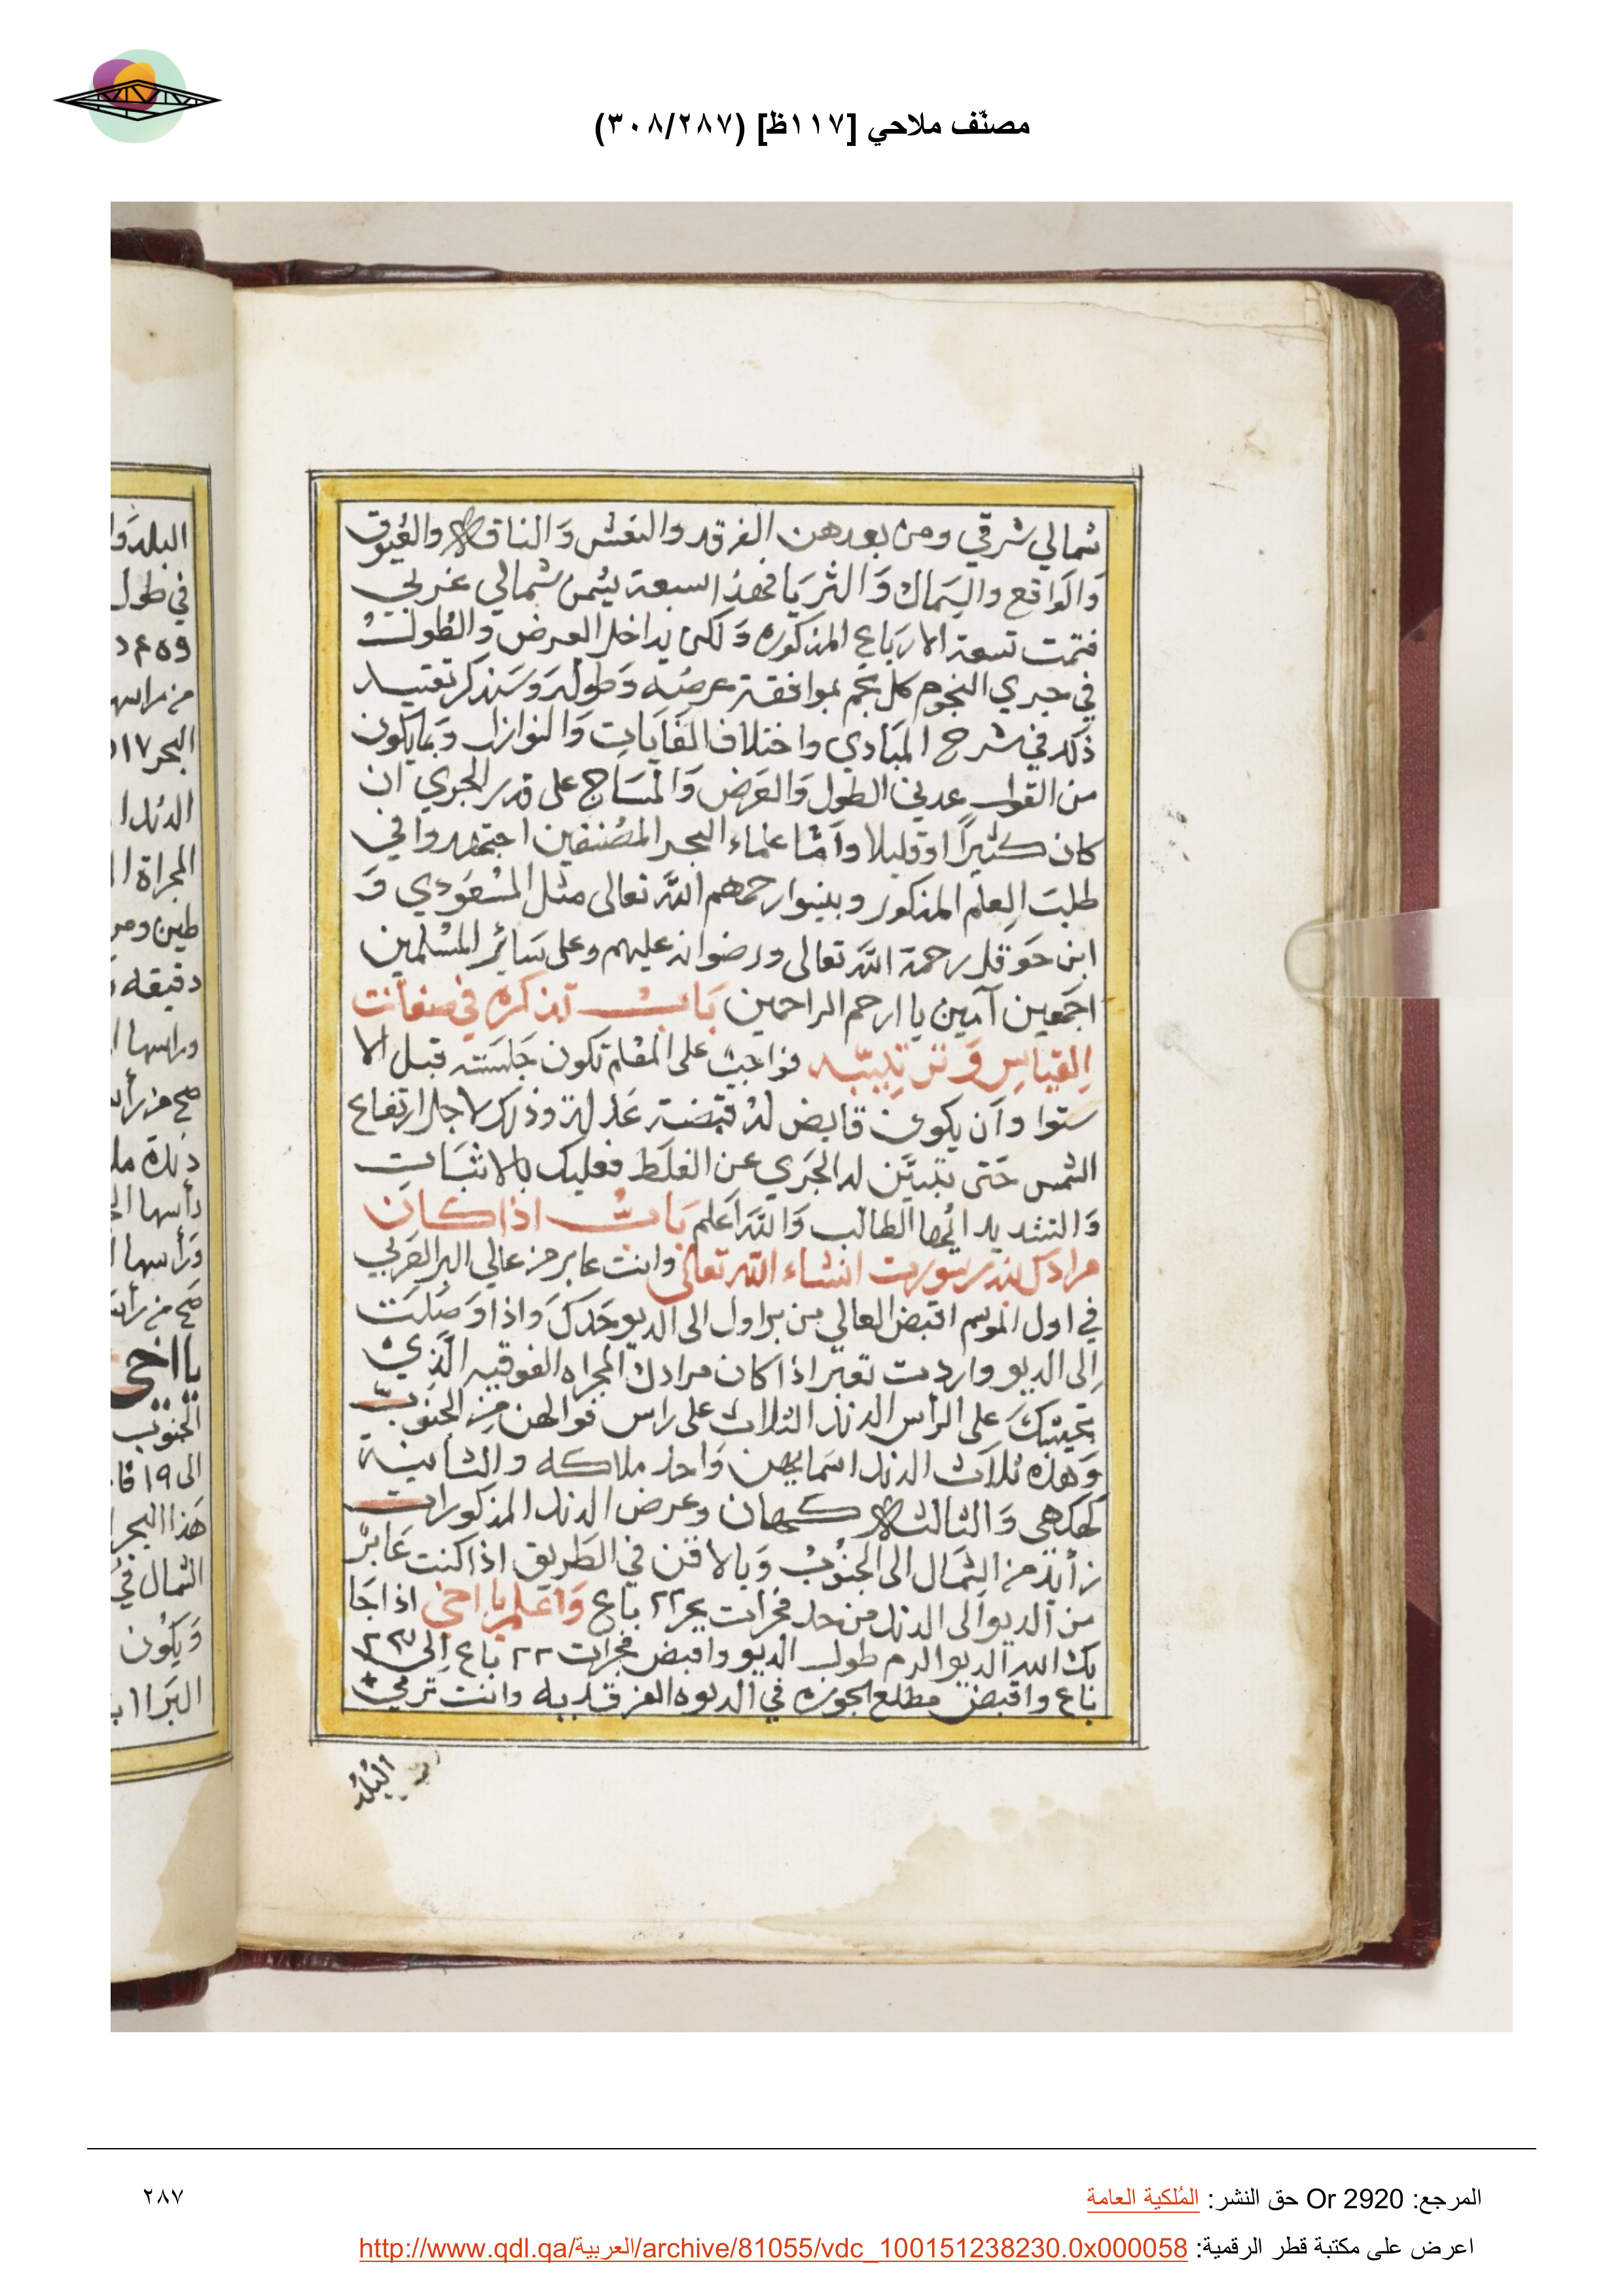 مصنّف ملاحي [١١٧ظ] (٣٠٨/٢٨٧)
شمالي شرقي ومن بعدهن الفرقد والنعش وَالناقة والعُيوق
وَالوَاقع والسِماك وَالثريَا فهذا السبعة يتمن شمالي غربي
فتمت تسعة الارَباع المذكوره وَلكن يداخل العرض والطُولْ
في جري النجوم كل نجم بموافقة عرضه وَطوله وَسَنذكر تقييد
ذَلك في شرح المبَادي واختلاف الغَايَات وَالنوازل وَبما يكون
من القول عدلي الطول وَالعَرض وَالمسَاح على قدر الجري ان
كان كثيرًا اوقليلا وامَّا علماء البحر المصُنفين اجتهدوا في
طلبَ العِلم المذكور وبينوا رحمهم اللَّه تعالى مثل المسْعوُدي وَ
ابن حَوقل رحمة اللَّه تعالى ورضوانه عليهم وعلى سَائر المسْلمين
اجَمعين آمين يا ارحم الراحمين بَابْ تذكره في صفة
القياسِ وَترتيبه فواجبْ على المعلم تكون جَلسَته قبل الا
ستوا وَأن يكون قابض لهُ قبضة عَدلة وذلك لاجل ارتفاع
الشمس حَتى تبَيَّن له الجَري عن الغلَط فعليك بالاثبَات
وَالتشديد ايُها الطالب وَاللَّه اَعلم بَابُ اذا كان
مرادك بندر سورت انشاء اللَّه تعالى وانت عابر من عالي البر العَربي
في اول الموسم اقبض العالي من براول الى الديو حَدكَ وَاذا وَصَلتَ
اِلى الديو واردت تعبر اذا كان مرادك المجراه الفوقيه الَّذي
تجيبَكَ على الرأس الدنذ الثلاث على راس فوالهن من الجنَوب
وَهذه ثلاَث الدند اسَمايهن وَاحد ملاكه والثانية
كهكهي وَالثالثة كهان وعرض الدند المذكورات
زأيد من الشمَال الى الجنوُبْ وَبالاقن في الطَريق اذا كنت عَابرْ
من الديو الى الدند من حد فجرات بحر ٢٢ باع وَاعَلم يا اخي اذا جَا
بك الله الديو الزم طول الديو واقبض فجرات ٢٢ باع اِلى ٢٣
باع واقبض مطلع الجوزه في الديوه الفرقديه وانت ترمي
البُلد
المرجع: Or 2920 حق النشر: المُلكية العامة
٢٨٧
اعرض على مكتبة قطر الرقمية: http://www.qdl.qa/العربية/archive/81055/vdc_100151238230.0x000058